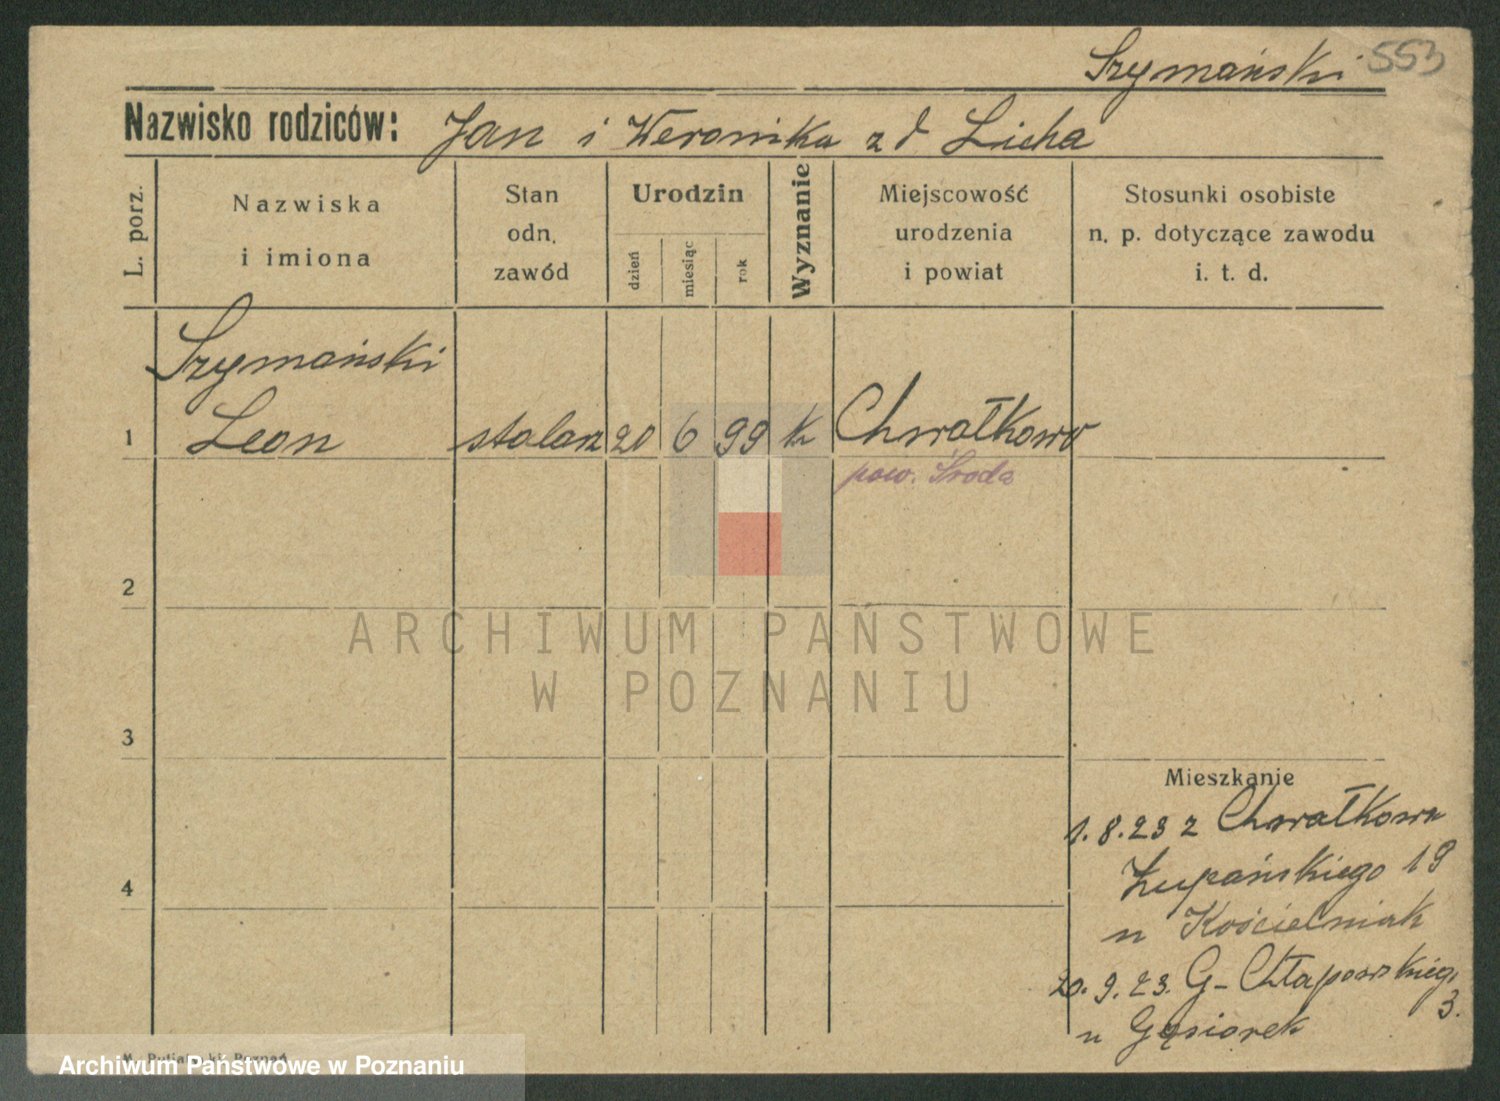 Szymański 553
Nazwisko rodziców: Jan i Weronika z d Licha
L. porz.
Nazwiska
i imiona
Stan
odn.
zawód
Urodzin
dzień
miesiąc
rok
Wyznanie
Miejscowość
urodzenia
i powiat
Stosunki osobiste
n. p. dotyczące zawodu
i. t. d.
Szymański
1 Leon stolarz 20 6 99 k Chwałkowo
pow. Środa
2
ARCHIWUM PAŃSTWOWE
W POZNANIU
3
Mieszkanie
1.8.23 z Chwałkowa
Łupańskiego 19
4
u Kościelniak
20.9.23. G- Chłapowskieg.
3.
u Gąsiorek
Poznań
Archiwum Państwowe w Poznaniu